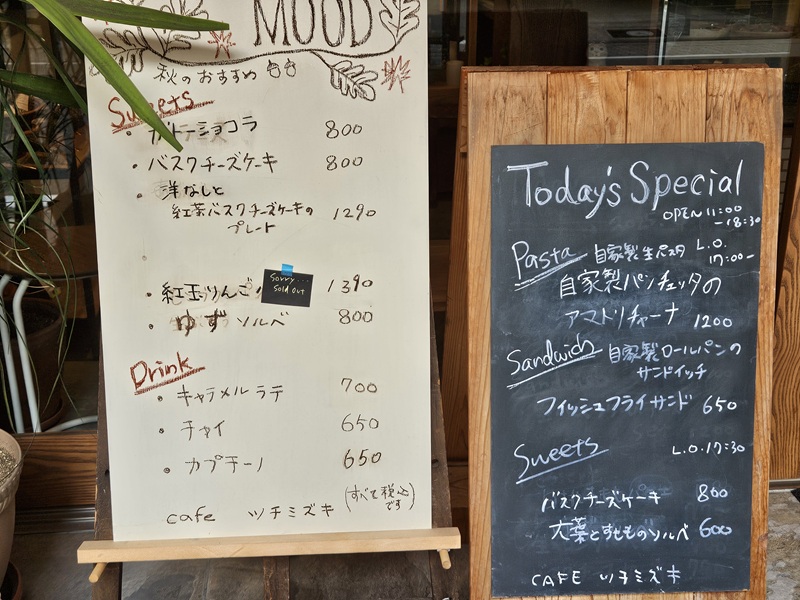 MOOD
秋のおすすめ
Sweets
・ガトーショコラ 800
・バスクチーズケーキ 800
・洋なしと
紅茶バスクチーズケーキの 1290
プレート
・紅玉りんご 1390
Sorry...
Sold out
・ゆずソルベ 800
Drink
・キャラメルラテ 700
・チャイ 650
・カプチーノ 650
(すべて税込です)
cafe ツチミズキ
Today's Special
OPEN 11:00
-18:30
Pasta 自家製生パスタ L.O.
17:00-
自家製パンチェッタの
アマトリチャーナ 1200
Sandwich 自家製ロールパンの
サンドイッチ
フィッシュフライサンド 650
Sweets L.O.17:30
バスクチーズケーキ 800
大葉とすもものソルベ 600
CAFE ツチミズキ